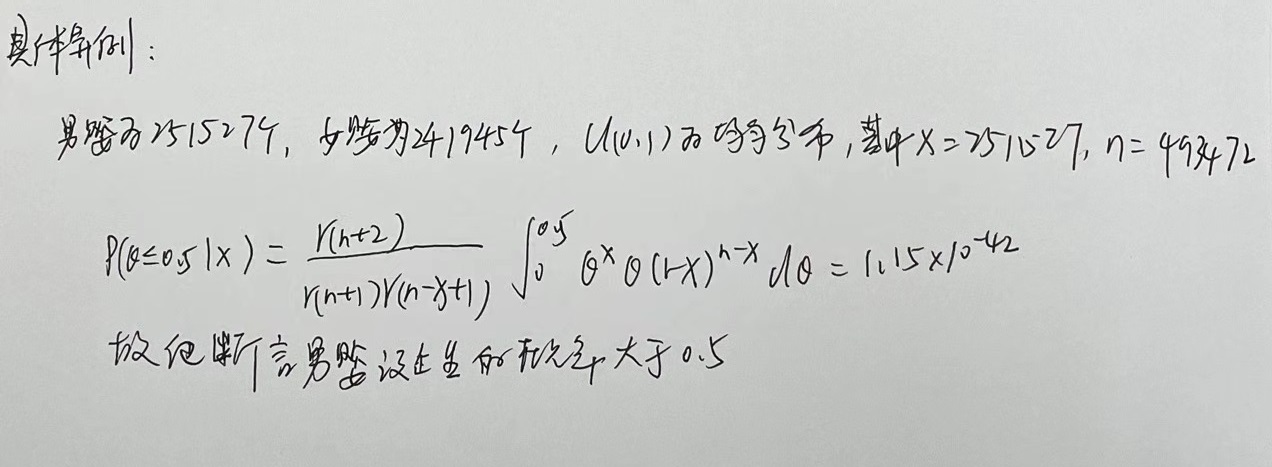 具体算例:
男婴为251527个, 女婴为241945个, U(0,1)为均匀分布, 其中 X=251527, n=493472
P(θ≤0.5|x) = Γ(n+2) / Γ(n+1)Γ(n-x+1) ∫₀^0.5 θ^x θ(1-X)^n-x dθ = 1.15×10^-42
故他断言男婴诞生的概率大于0.5